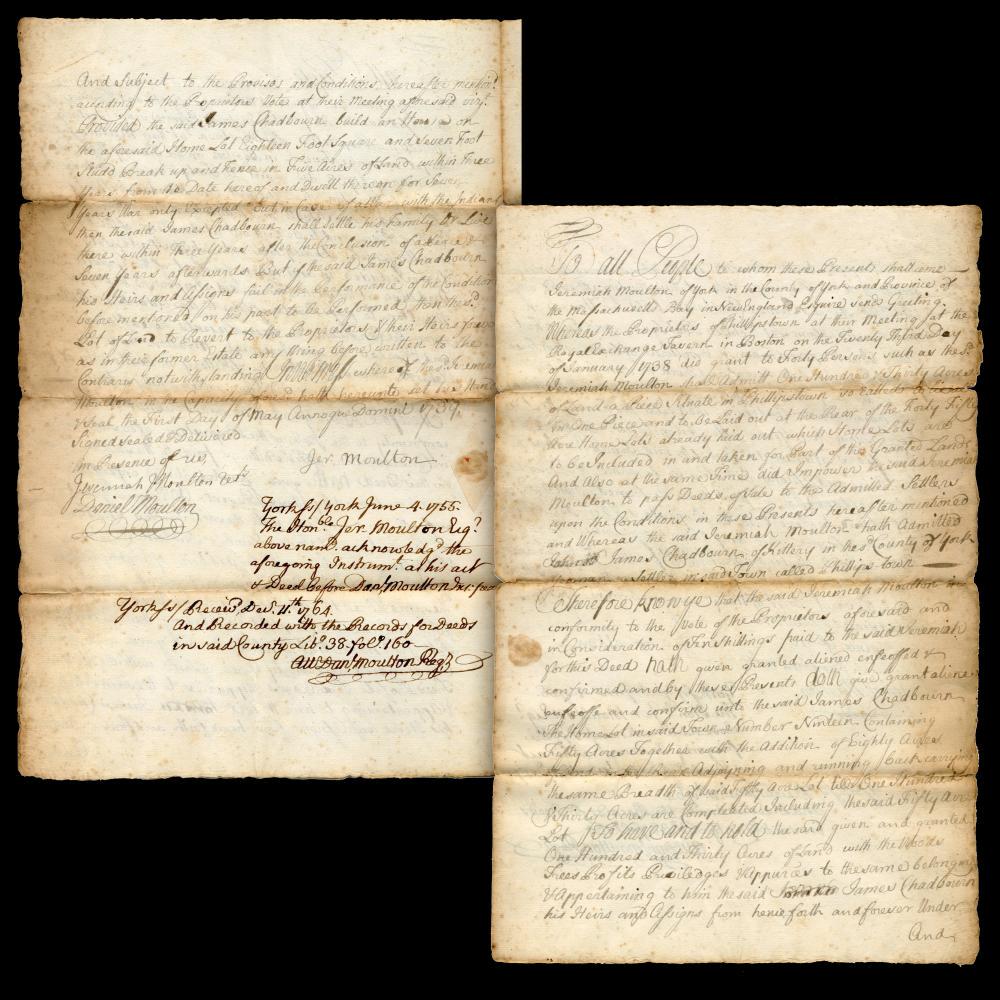 To all People to whom these Presents shall come
Jeremiah Moulton of York in the County of York and Province of
the Massachusetts Bay in New England Esquire sends Greeting.
Whereas the Proprietors of Phillipstown at their Meeting at the
Royal Exchange Tavern in Boston on the Twenty third Day
of January 1738 did grant to Forty Persons such as the sd.
Jeremiah Moulton should Admitt One Hundred & Thirty Acres
of Land a Piece Situate in Phillipstown so called to
in One Piece and to be Laid out at the Rear of the Forty Fifty
Acre Home Lots already laid out which Home Lots are
to be Included in and taken for Part of the Granted Lands
And Also at the same Time did Impower the said Jeremiah
Moulton to pass Deeds of Sale to the Admitted Settlers
upon the Conditions in these Presents hereafter mentioned
and Whereas the said Jeremiah Moulton hath Admitted
James Chadbourn of Kittery in the sd. County of York
Yeoman a Settler in said Town called Phillipstown
Therefore know ye that the said Jeremiah Moulton in
conformity to the Vote of the Proprietors aforesaid and
in Consideration of Ten Shillings paid to the said Jeremiah
for this Deed hath given granted aliened enfeoffed &
confirmed and by these Presents doth give grant aliene
enfeoffe and confirm unto the said James Chadbourn
the Home Lot in said Town Number Ninteen Containing
Fifty Acres Together with the Addition of Eighty Acres
of Land in the Rear Adjoyning and running back carrying
the same Breadth of said Fifty Acre Lot till One Hundred
& Thirty Acres are Compleated Including the said Fifty Acre
Lot To have and to hold the said given and granted
One Hundred and Thirty Acres of Land with the Woods
Trees Profits Priviledges & Appurces to the same belonging
& Appertaining to him the said James Chadbourn
his Heirs and Assigns from henceforth and forever Under
And
And Subject to the Provisos and Conditions hereafter mentiond
according to the Proprietors Vote at their Meeting aforesaid vizt.
Provided the said James Chadbourn build an House on
the aforesaid Home Lot Eighteen Foot Square and Seven Foot
Studd Break up and Fence in Five Acres of Land within Three
Years from the Date hereof and Dwell thereon for Seven
Years War only Excepted But in Case of a War with the Indians
then the said James Chadbourn shall settle his Family & Live
there within Three Years after the Conclusion of a Peace &
Seven Years afterwards But if the said James Chadbourn
his Heirs and Assigns fail in the Performance of the Conditions
before mentioned on his part to be Performed then the sd.
Lot of Land to Revert to the Proprietors & their Heirs forever
as in their former Estate any thing before written to the
Contrary notwithstanding In Witness whereof the sd. Jeremiah
Moulton in the Capacity aforesd. hath hereunto set his Hand
& Seal the First Day of May Annoque Domini 1739.
Signed Sealed & Delivered
In Presence of us,
Jer. Moulton
Jeremiah Moulton tert.
Daniel Moulton
York ss/ York June 4. 1755.
The Honble. Jer. Moulton Esqr.
above namd. acknowledgd. the
aforegoing Instrumt. as his act
& Deed before Danl. Moulton Jus: peac
York ss/ Receivd. Dec. 11th. 1764.
And Recorded with the Records for Deeds
in said County Libo. 38. folo. 160
Attr. Danl. Moulton Regr.